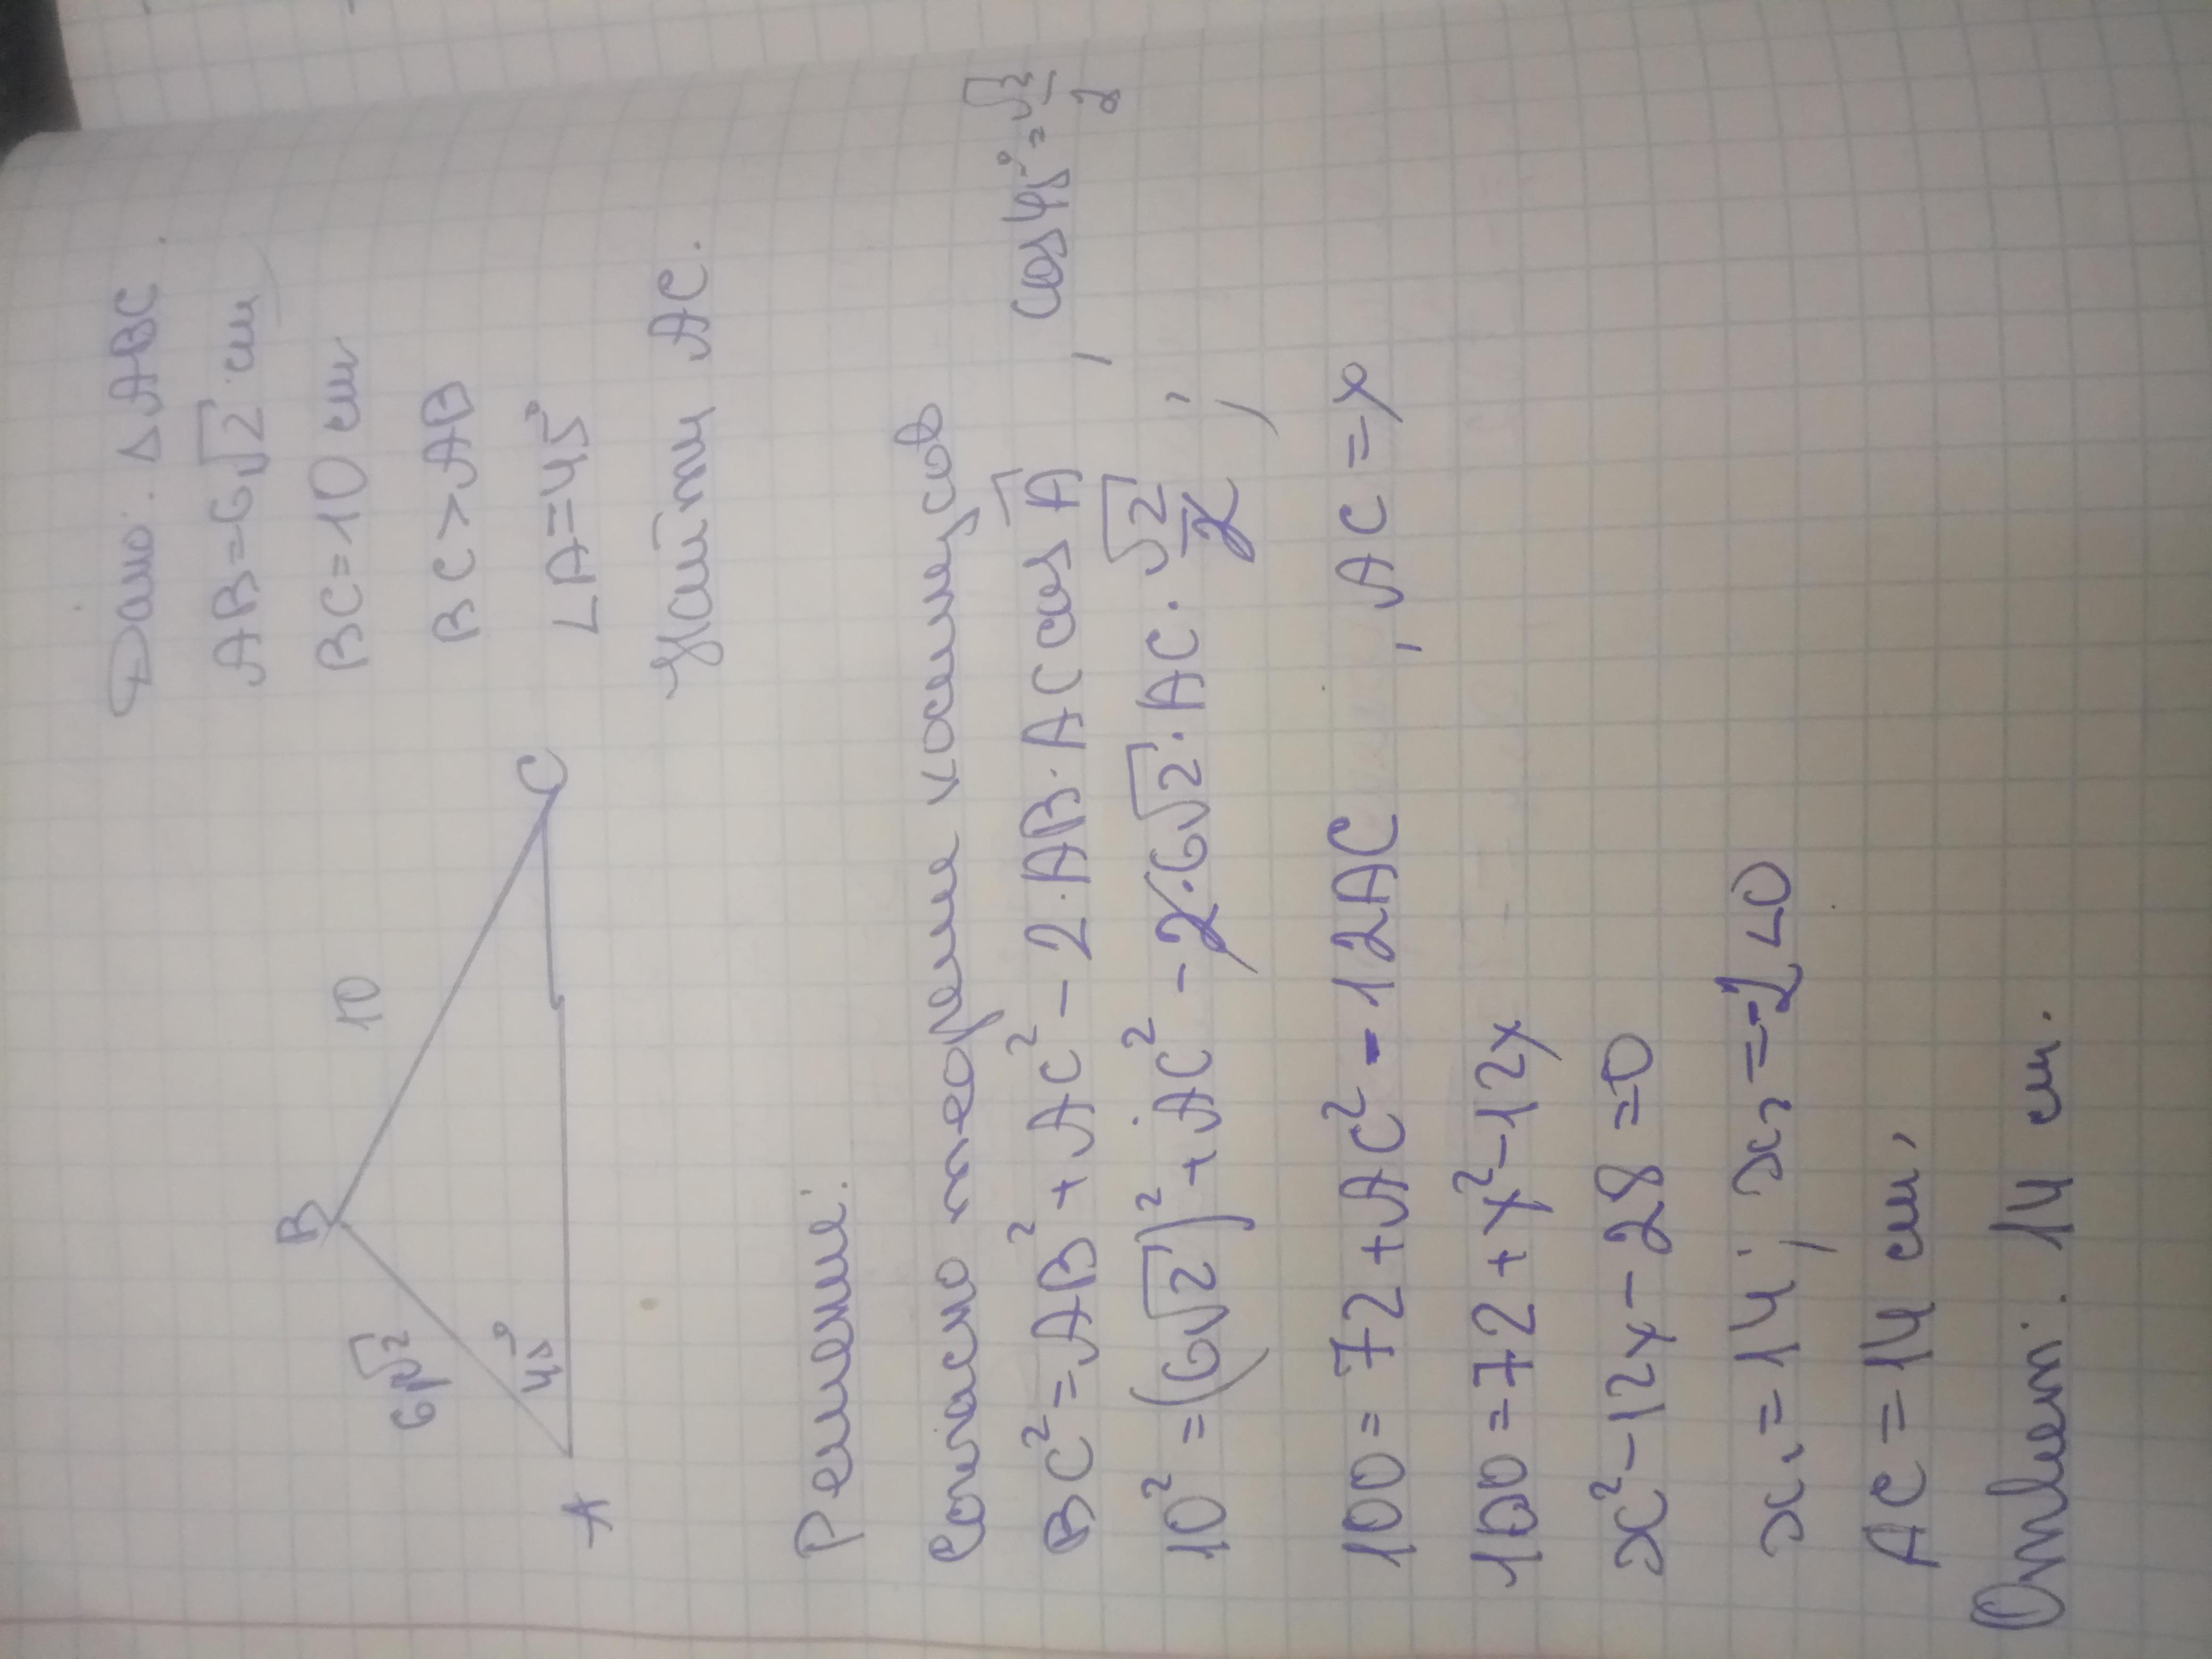 Дано: △ABC.
AB=6√2 см
BC=10 см
BC>AB
∠A=45°
Найти AC.
B
10
6√2
45°
A
C
Решение:
Согласно теореме косинусов
BC²=AB²+AC²-2·AB·AC cos A, cos45°=√2/2
10²=(6√2)²+AC²-2·6√2·AC·√2/2;
100=72+AC²-12AC, AC=x
100=72+x²-12x
x²-12x-28=0
x₁=14; x₂=-2<0
AC=14 см,
Ответ: 14 см.